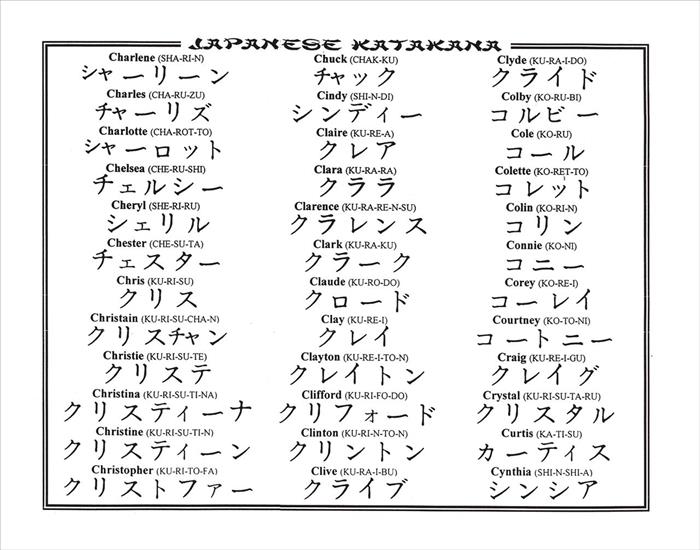 JAPANESE KATAKANA
Charlene (SHA-RI-N)
シャーリーン
Charles (CHA-RU-ZU)
チャーリズ
Charlotte (CHA-ROT-TO)
シャーロット
Chelsea (CHE-RU-SHI)
チェルシー
Cheryl (SHE-RI-RU)
シェリル
Chester (CHE-SU-TA)
チェスター
Chris (KU-RI-SU)
クリス
Christain (KU-RI-SU-CHA-N)
クリスチャン
Christie (KU-RI-SU-TE)
クリステ
Christina (KU-RI-SU-TI-NA)
クリスティーナ
Christine (KU-RI-SU-TI-N)
クリスティーン
Christopher (KU-RI-TO-FA)
クリストファー
Chuck (CHAK-KU)
チャック
Cindy (SHI-N-DI)
シンディー
Claire (KU-RE-A)
クレア
Clara (KU-RA-RA)
クララ
Clarence (KU-RA-RE-N-SU)
クラレンス
Clark (KU-RA-KU)
クラーク
Claude (KU-RO-DO)
クロード
Clay (KU-RE-I)
クレイ
Clayton (KU-RE-I-TO-N)
クレイトン
Clifford (KU-RI-FO-DO)
クリフォード
Clinton (KU-RI-N-TO-N)
クリントン
Clive (KU-RA-I-BU)
クライブ
Clyde (KU-RA-I-DO)
クライド
Colby (KO-RU-BI)
コルビー
Cole (KO-RU)
コール
Colette (KO-RET-TO)
コレット
Colin (KO-RI-N)
コリン
Connie (KO-NI)
コニー
Corey (KO-RE-I)
コーレイ
Courtney (KO-TO-NI)
コートニー
Craig (KU-RE-I-GU)
クレイグ
Crystal (KU-RI-SU-TA-RU)
クリスタル
Curtis (KA-TI-SU)
カーティス
Cynthia (SHI-N-SHI-A)
シンシア